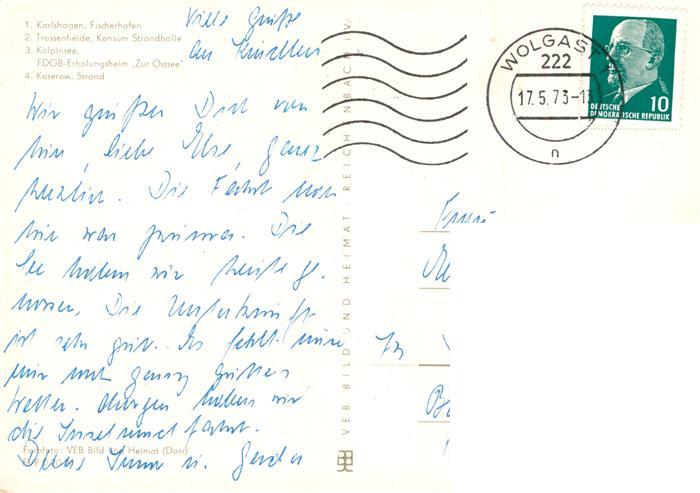 1. Karlshagen, Fischerhafen
2. Trassenheide, Konsum Strandhalle
3. Kölpinsee,
FDGB-Erholungsheim „Zur Ostsee"
4. Koserow, Strand
Viele Grüße
an
Wir grüßen Dich von
hier, liebe Else, ganz
herzlich. Die Fahrt nach
hier war prima. Die
See haben wir heute ge-
nossen. Die Unterkunft
ist sehr gut. Es fehlt nur
nur noch ganz gutes
Wetter. Morgen haben wir
die Inselrundfahrt.
Deine u. Gerda
Farbfoto: VEB Bild und Heimat (Darr)
VEB BILD UND HEIMAT · REICHENBACH i. V.
WOLGAST
222
17.5.73-13
n
DEUTSCHE
DEMOKRATISCHE REPUBLIK
10